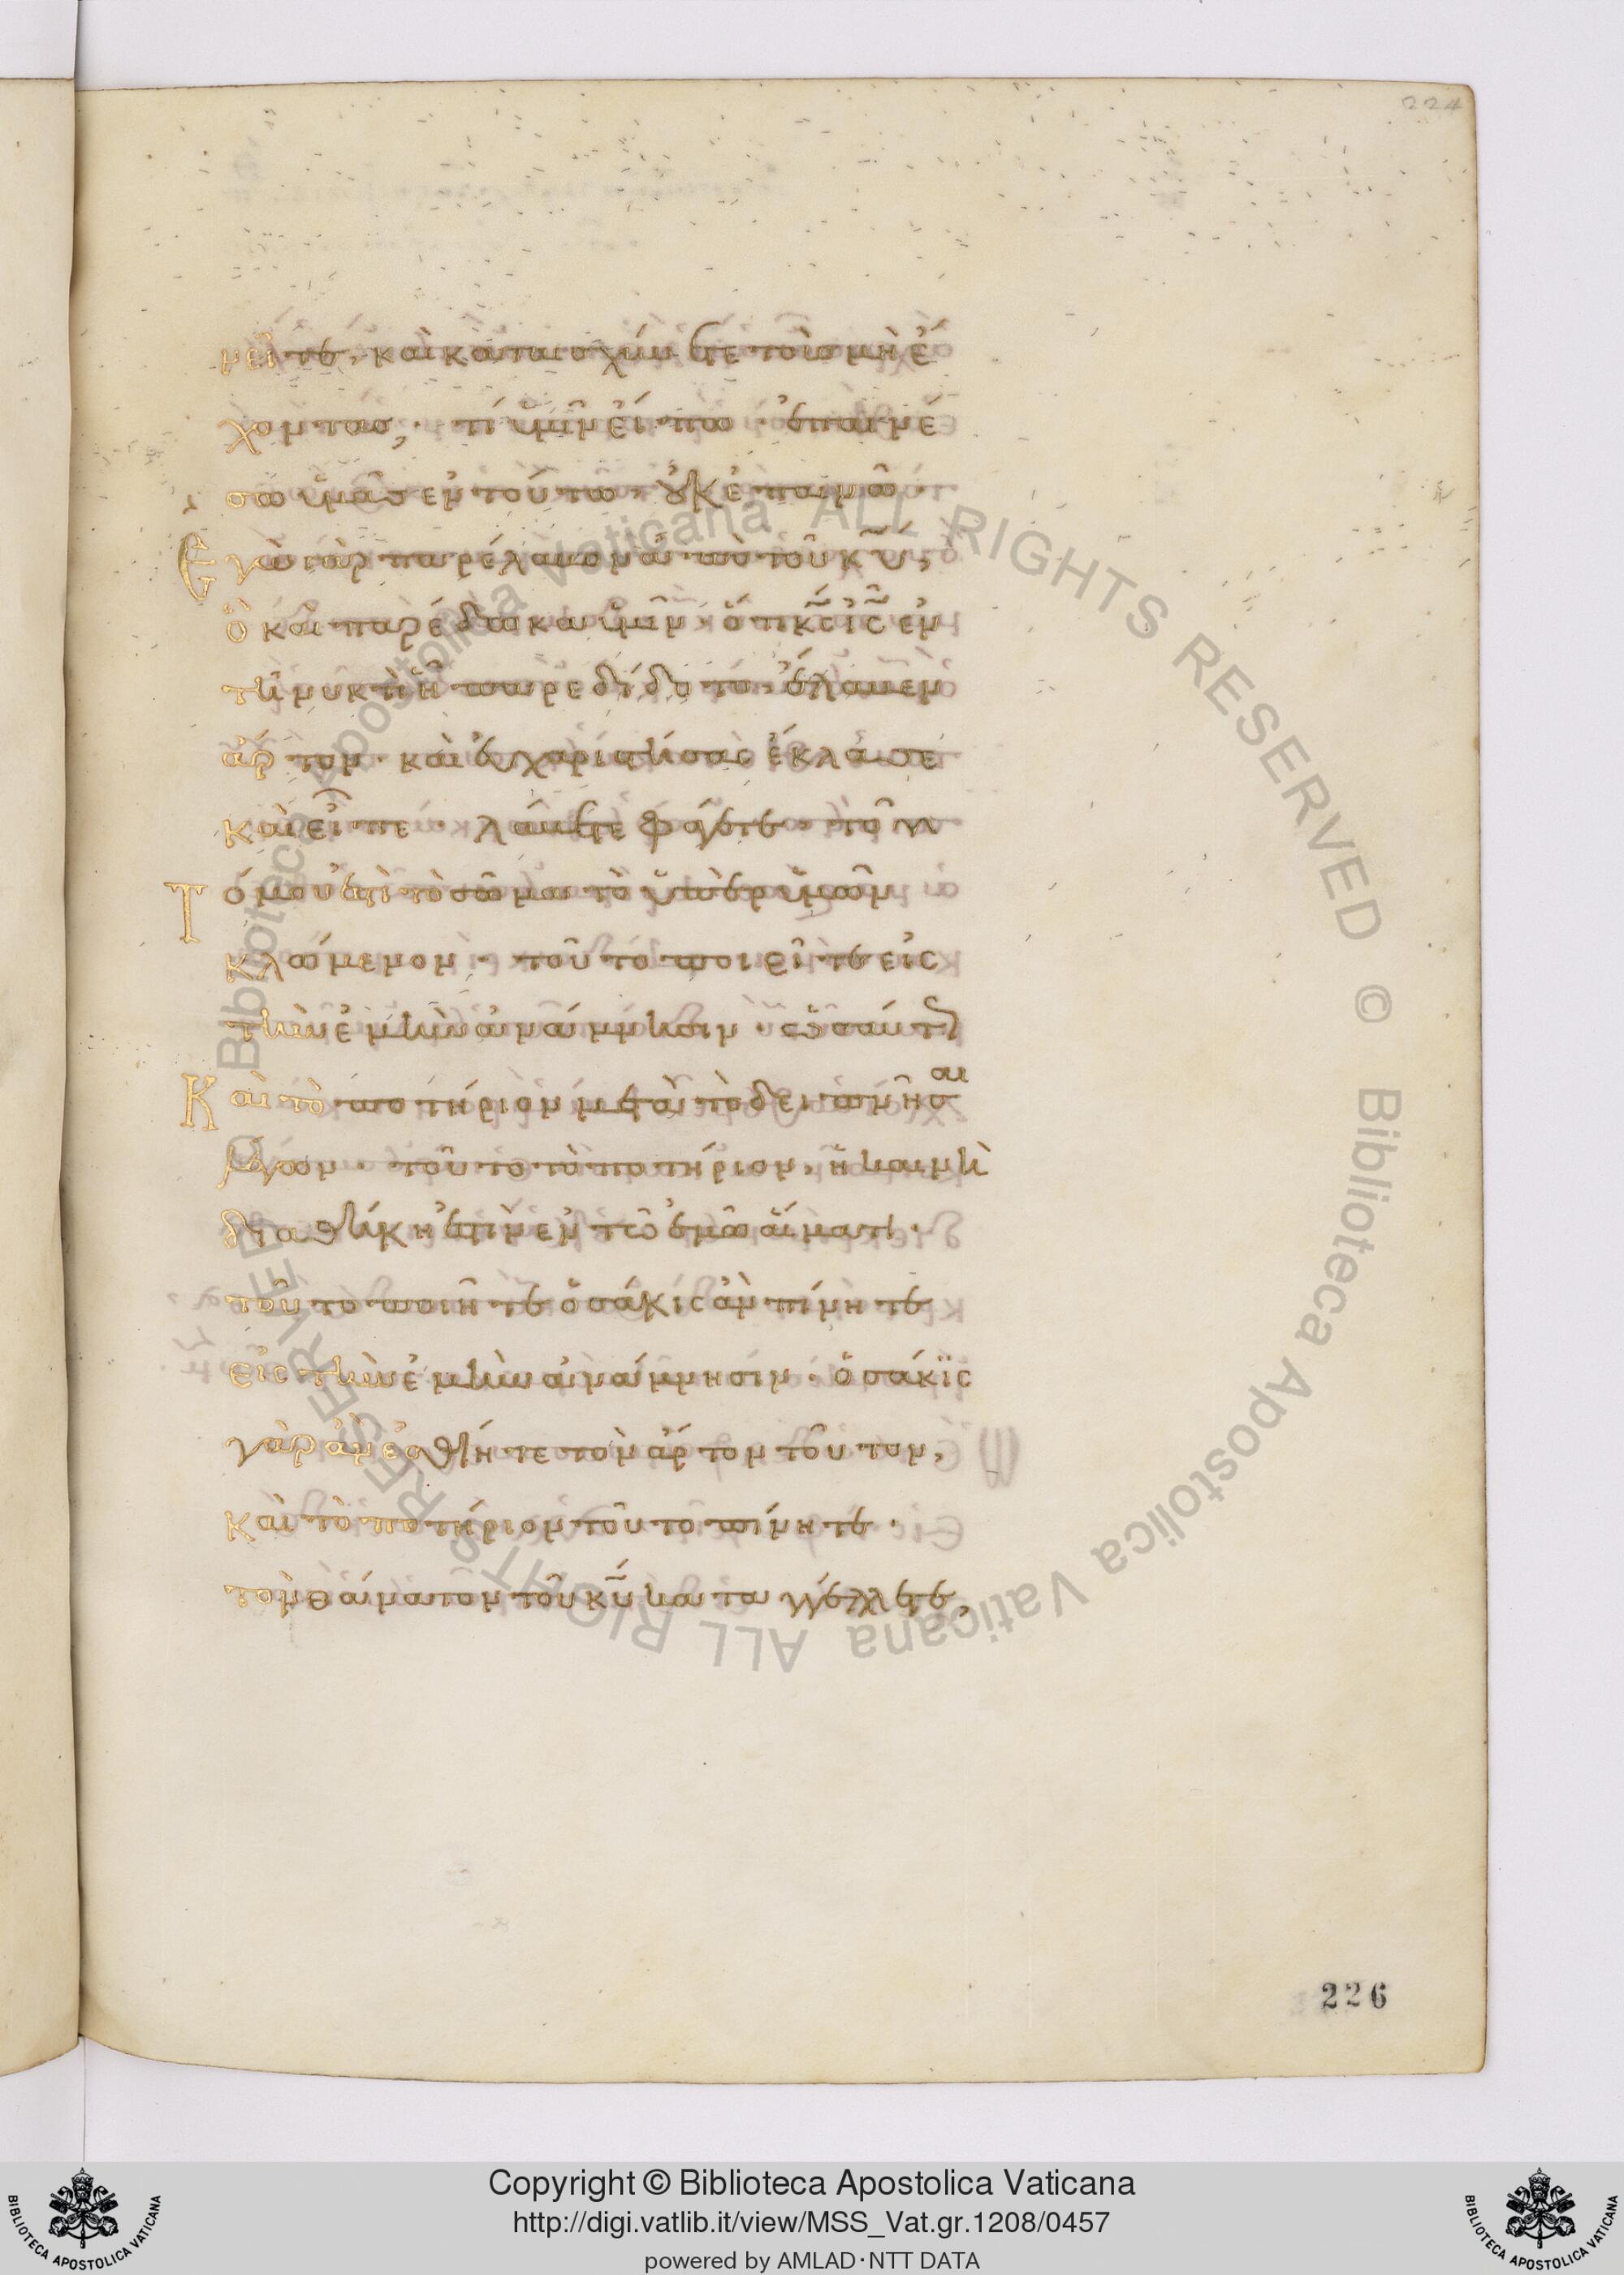 224
νεῖτε, καὶ καταισχύνετε τοὺς μὴ ἔ
χοντας; τί ὑμῖν εἴπω· ἐπαινέ
σω ὑμᾶς ἐν τούτω· οὐκ ἐπαινῶ·
Ἐγὼ γὰρ παρέλαβον ἀπὸ τοῦ κυ,
ὃ καὶ παρέδωκα ὑμῖν· ὅτι κς ις ἐν
τῆ νυκτὶ ἧ παρεδίδοτο, ἔλαβεν
ἄρτον· καὶ εὐχαριστήσας ἔκλασε
καὶ εἶπε· λάβετε φάγετε· τοῦ
Τό μού ἐστι τὸ σῶμα τὸ ὑπὲρ ὑμῶν
κλώμενον· τοῦτο ποιεῖτε εἰς
τὴν ἐμὴν ἀνάμνησιν· ὡσαύτως
Καὶ τὸ ποτήριον μετὰ τὸ δειπνῆσαι
λέγων· τοῦτο τὸ ποτήριον, ἡ καινὴ
διαθήκη ἐστὶν ἐν τῶ ἐμῶ αἵματι·
τοῦτο ποιῆτε ὁσάκις ἂν πίνητε
εἰς τὴν ἐμὴν ἀνάμνησιν· ὁσάκϊς
γὰρ ἂν ἐσθίητε τὸν ἄρτον τοῦτον,
καὶ τὸ ποτήριον τοῦτο πίνητε·
τὸν θάνατον τοῦ κυ καταγγέλλετε,
226
Biblioteca Apostolica Vaticana ALL RIGHTS RESERVED © Biblioteca Apostolica Vaticana ALL RIGHTS RESERVED ©
BIBLIOTECA APOSTOLICA VATICANA
Copyright © Biblioteca Apostolica Vaticana
http://digi.vatlib.it/view/MSS_Vat.gr.1208/0457
powered by AMLAD·NTT DATA
BIBLIOTECA APOSTOLICA VATICANA